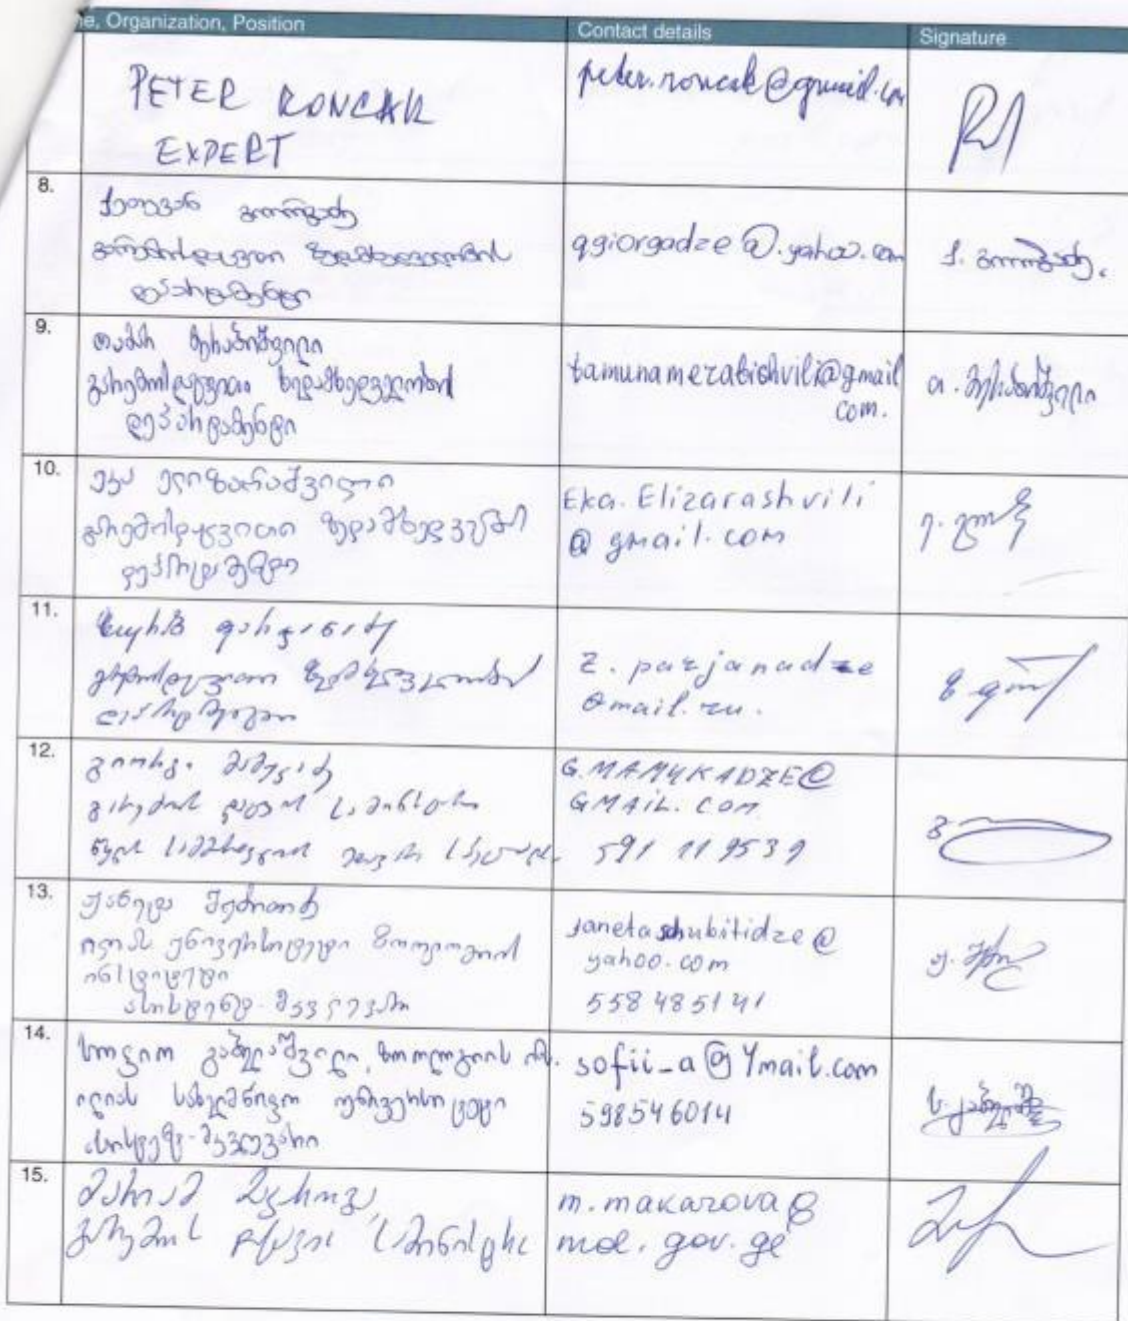 e, Organization, Position Contact details Signature
PETER RONCAK
EXPERT
peter.roncak@gmail.com
8.
ქეთევან გიორგაძე
გარემოსდაცვითი ზედამხედველობის
დეპარტამენტი
qgiorgadze@.yahoo.com
ქ. გიორგაძე.
9.
თამარ მერაბიშვილი
გარემოსდაცვითი ზედამხედველობის
დეპარტამენტი
tamunamerabishvili@gmail
com.
თ. მერაბიშვილი
10.
ეკა ელიზარაშვილი
გარემოსდაცვითი ზედამხედველობის
დეპარტამენტი
Eka.Elizarashvili
@gmail.com
11.
გარემოსდაცვითი ზედამხედველობის
დეპარტამენტი
z.parjanadze
@mail.ru.
12.
გიორგი
გარემოს დაცვის სამინისტრო
წყლის
G.MAMUKADZE@
GMAIL.COM
591 11 9539
13.
ჟანეტა
ილიას უნივერსიტეტი ზოოლოგიის
ინსტიტუტი
ასისტენტ-მკვლევარი
janetashubitidze@
yahoo.com
558 485141
14.
სოფიო ზოოლოგიის ინ.
ილიას სახელმწიფო უნივერსიტეტი
ასისტენტ-მკვლევარი
sofii_a@Ymail.com
598546014
15.
მარიამ მაკაროვა,
გარემოს დაცვის სამინისტრო
m.makarova@
moe.gov.ge